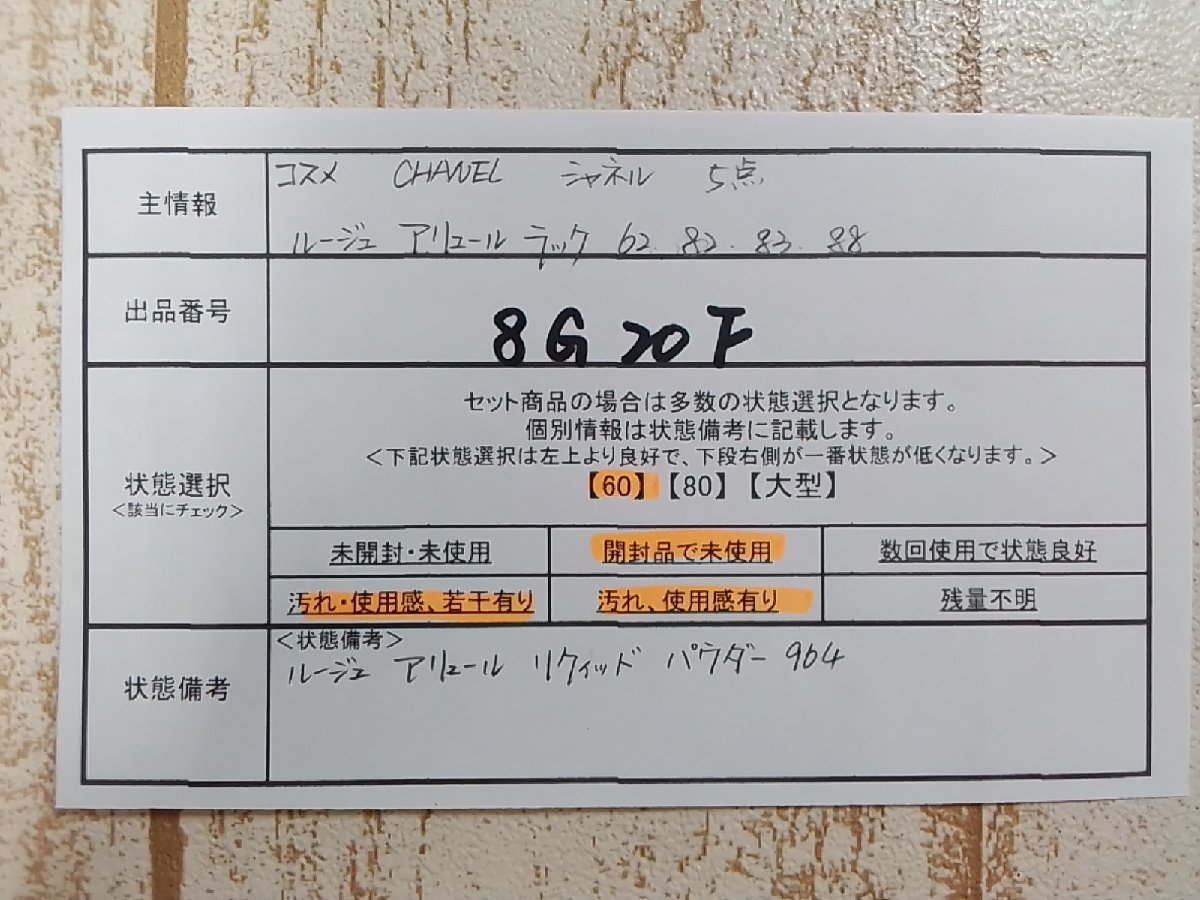 主情報
コスメ CHANEL シャネル 5点
ルージュ アリュール ラック 62. 82. 83. 88
出品番号
8G20F
状態選択
<該当にチェック>
セット商品の場合は多数の状態選択となります。
個別情報は状態備考に記載します。
<下記状態選択は左上より良好で、下段右側が一番状態が低くなります。>
【60】【80】【大型】
未開封・未使用 開封品で未使用 数回使用で状態良好
汚れ・使用感、若干有り 汚れ、使用感有り 残量不明
状態備考
<状態備考>
ルージュ アリュール リクィッド パウダー 964